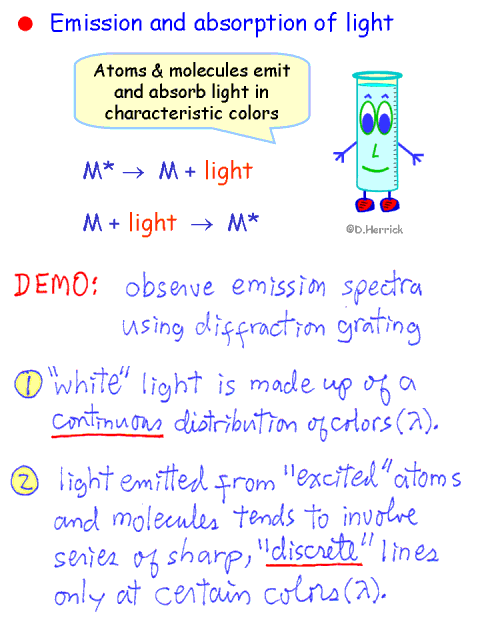 Emission and absorption of light
Atoms & molecules emit
and absorb light in
characteristic colors
M* → M + light
M + light → M*
©D.Herrick
DEMO: observe emission spectra
using diffraction grating
1 "white" light is made up of a
continuous distribution of colors (λ).
2 light emitted from "excited" atoms
and molecules tends to involve
series of sharp, "discrete" lines
only at certain colors (λ).